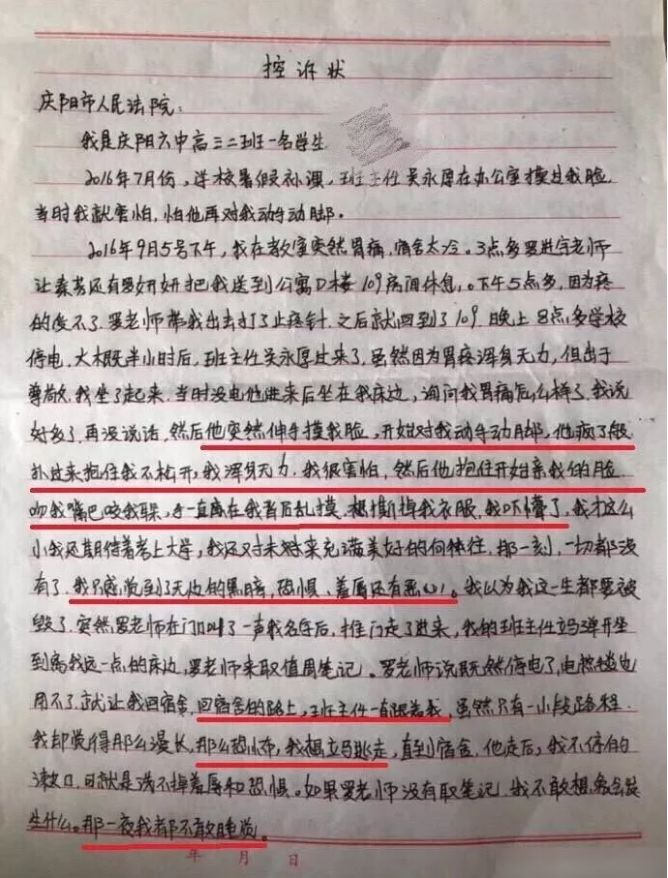 控诉状
庆阳市人民法院:
我是庆阳六中高三二班一名学生
2016年7月份,学校暑假补课,班主任吴永厚在办公室摸过我脸,
当时我就害怕,怕他再对我动手动脚。
2016年9月5号下午,我在教室突然胃痛,宿舍太冷。3点多罗进宇老师
让秦芳还有罗妍妍把我送到公寓D楼109房间休息。下午5点多,因为疼
的受不了.罗老师带我出去打了止疼针.之后就回到了109.晚上8点多学校
停电.大概半小时后,班主任吴永厚过来了,虽然因为胃疼浑身无力,但出于
尊敬,我坐了起来.当时没电他进来后坐在我床边,询问我胃痛怎么样了.我说
好多了.再没说话,然后他突然伸手摸我脸,开始对我动手动脚,他疯了般
扑过来抱住我不松开,我浑身无力.我很害怕,然后他抱住开始亲我的脸
吻我嘴巴咬我耳朵,手一直在我背后乱摸,想撕掉我衣服,我吓懵了,我才这么
小我还期待着考上大学,我还对未来充满美好的向往,那一刻,一切都没
有了.我只感觉到了无边的黑暗,恐惧、羞辱还有恶心。我以为我这一生都要被
毁了.突然罗老师在门口叫了一声我名字后,推门走了进来,我的班主任立马弹开坐
到离我远一点的床边,罗老师来取值周笔记。罗老师说既然停电了,电热毯也
用不了.就让我回宿舍,回宿舍的路上,班主任一直跟着我,虽然只有一小段路程.
我却觉得那么漫长,那么恐怖,我想立马逃走,直到宿舍.他走后,我不停的
漱口.可就是洗不掉羞辱和恐惧。如果罗老师没有取笔记,我不敢想会发
生什么。那一夜我都不敢睡觉。
年 月 日